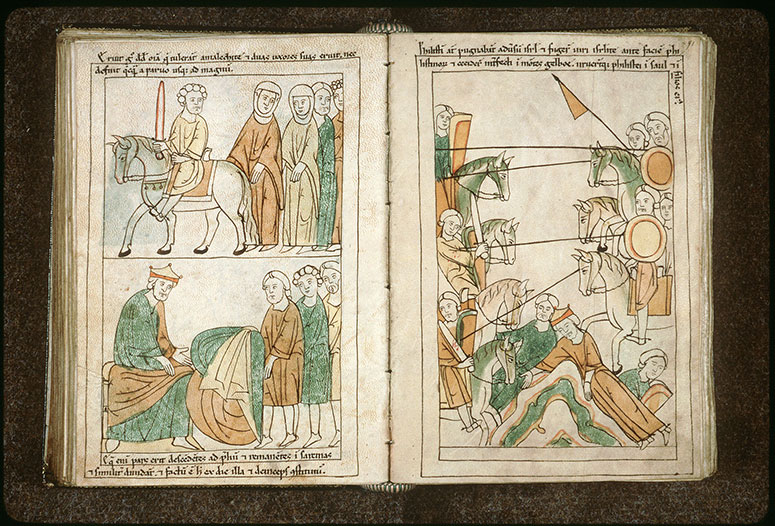 Eruit g dd oīa q̄ tulerant amalechite ⁊ duas uxores suas eruit, nec
defuit qcq̄ a paruo usq; ad magnū.
q̄ eni pars erit descēdētes ad pliū ⁊ remanētes ī sarcinas
⁊ similit diuidāt. ⁊ factū ē h ex die illa ⁊ deinceps ꝯstitutū.
Philistī aūt pugnabāt adūsū isrl ⁊ fuger uiri isrlite ante faciē phi
listinoꝝ ⁊ ceciderᷓ īt̄fecti ī mōte gelboe. irruerūtq; philistei ī saul ⁊ ī
filios ei